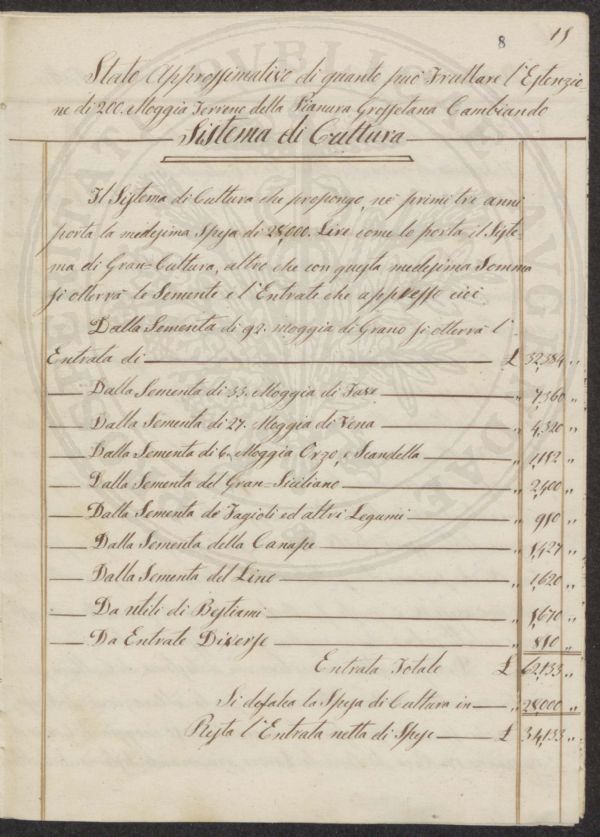 8 15
Stato Approssimativo di quanto può Fruttare l'Estenzio=
ne di 200. Moggia Terreno della Pianura Grossetana Cambiando
Sistema di Cultura
Il Sistema di Cultura che propongo, ne' primi tre anni
porta la medesima Spesa di 28,000. Lire come lo porta il Siste=
ma di Gran=Cultura, altro che con questa medesima Somma
si otterrà le Semente e l'Entrate che appresso cioè
Dalla Sementa di 92. moggia di Grano si otterrà l'
Entrata di £ 32,384 "
Dalla Sementa di 33. Moggia di Fave " 7,360 "
Dalla Sementa di 27. Moggia di Vena " 4,320 "
Dalla Sementa di 6. Moggia Orzo, e Scandella " "
Dalla Sementa del Gran=Siciliano " 2,400 "
Dalla Sementa de' Fagioli ed altri Legumi " "
Dalla Sementa della Canape " "
Dalla Sementa del Lino " 1,620 "
Da utili di Bestiami " "
Da Entrate Diverse " 810 "
Entrata Totale £ 62,133 "
Si defalca la Spesa di Cultura in " 28,000 "
Resta l'Entrata netta di Spese £ 34,133 "